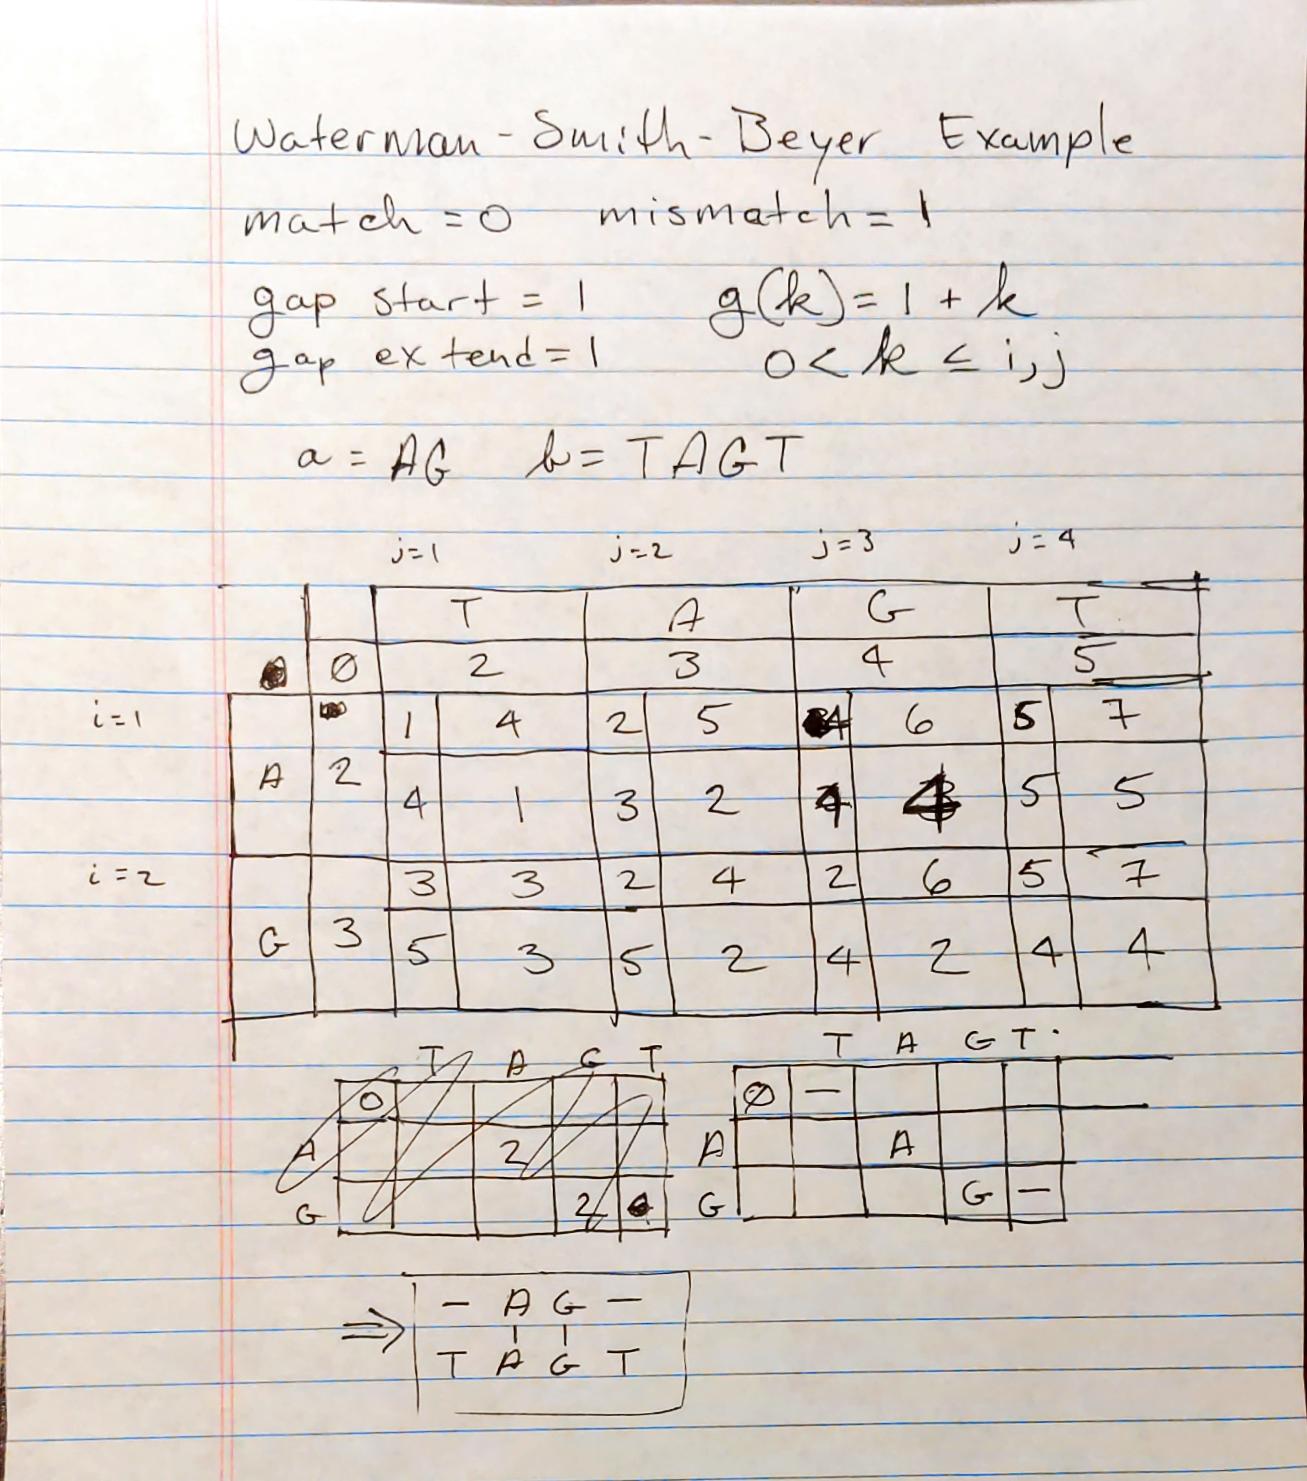 Waterman-Smith-Beyer Example
match = 0 mismatch = 1
gap start = 1 g(k) = 1 + k
gap extend = 1 0 < k ≤ i, j
a = AG b = TAGT
j=1 j=2 j=3 j=4
T A G T
0 2 3 4 5
i=1 1 4 2 5 4 6 5 7
A 2 4 1 3 2 4 4 5 5
i=2 3 3 2 4 2 6 5 7
G 3 5 3 5 2 4 2 4 4
T A G T
0
A 2
G 2
T A G T
0 –
A A
G G –
⇒ – A G –
| |
T A G T